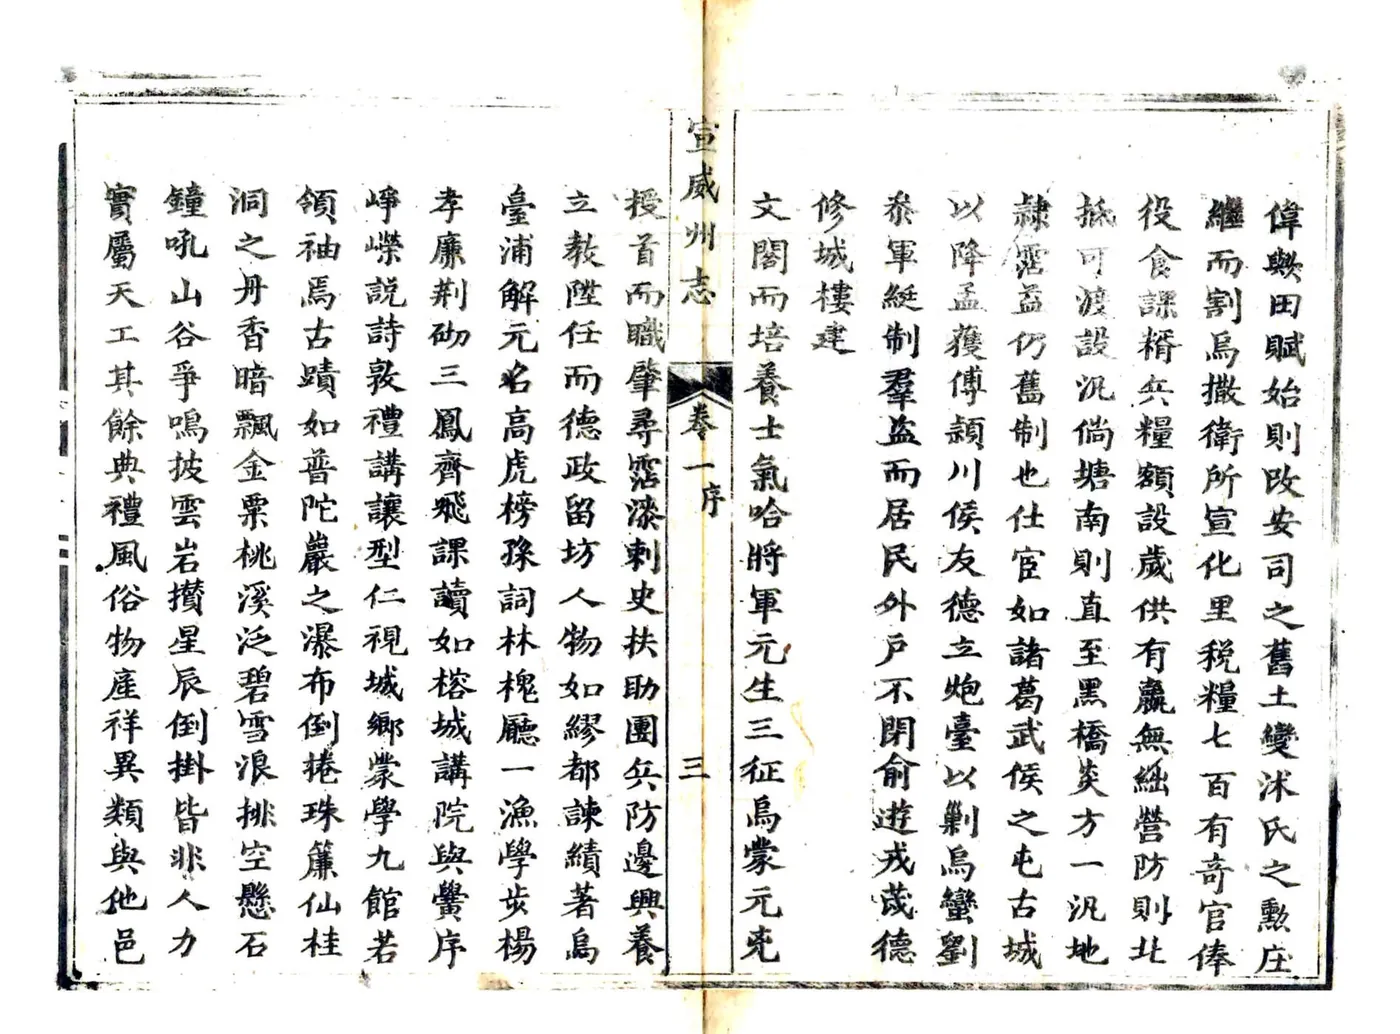 偉歟田賦始則改安司之舊土變沭氏之勳庄
繼而割烏撒衛所宣化里税糧七百有奇官俸
役食課糈兵糧額設歲供有贏無絀營防則北
抵可渡設汛倘塘南則直至黑橋炎方一汛地
隷霑益仍舊制也仕宦如諸葛武侯之屯古城
以降孟獲傅潁川侯友德立炮臺以剿烏蠻劉
叅軍綎制羣盗而居民外戸不閉俞遊戎茂德
修城樓建
文閣而培養士氣哈將軍元生三征烏蒙元兇
宣威州志
卷一序
三
授首而職肇尋霑漆刺史扶助團兵防邊興養
立教陞任而德政留坊人物如繆都諫績著烏
臺浦解元名高虎榜孫詞林槐廳一漁學步楊
孝廉荆砌三鳳齊飛課讀如榕城講院與黌序
崢嶸説詩敦禮講讓型仁視城鄉蒙學九館若
領袖焉古蹟如普陀巖之瀑布倒捲珠簾仙桂
洞之丹香暗飄金粟桃溪泛碧雪浪排空懸石
鐘吼山谷爭鳴披雲岩攅星辰倒掛皆非人力
實屬天工其餘典禮風俗物產祥異類與他邑